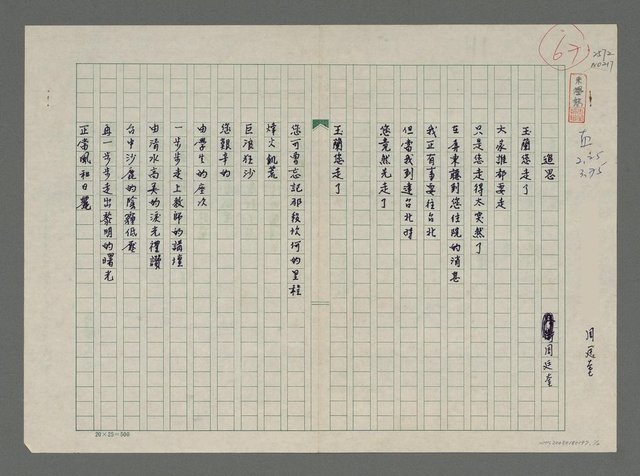 67
2572
NO217
追思
周廷奎
玉蘭您走了
大家誰都要走
只是您走得太突然了
在屏東聽到您住院的消息
我正有事要往台北
但當我到達台北時
您竟然先走了
玉蘭您走了
您可曾忘記那段坎坷的里程
烽火飢荒
巨浪狂沙
您艱辛的
由學生的座次
一步步走上教師的講壇
由清水高美的淚光禮讚
台中沙鹿的陰霾低壓
再一步步走出黎明的曙光
正當風和日麗
20×25=500
2.35
3.95